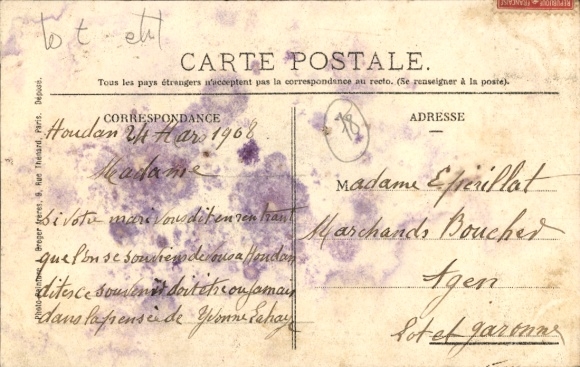 RÉPUBLIQUE FRANÇAISE
Lot et
CARTE POSTALE.
Tous les pays étrangers n'acceptent pas la correspondance au recto. (Se renseigner à la poste).
CORRESPONDANCE
Houdan 24 Mars 1908
Madame
si votre mari vous dit en rentrant
que l'on se souvien de vous a Houdan
dites ce souvenir doit être ou jamais
dans la pensée de Yvonne Lahaye
ADRESSE
18
Madame Epirillat
Marchands Boucher
Agen
Lot et garonne
Photo-peinture, Breger Frères, 9, Rue Thénard, Paris. Déposé.